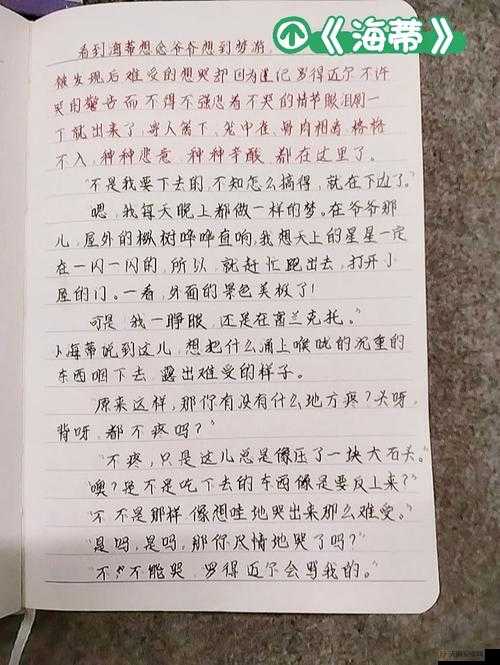 《海蒂》
看到海蒂想念爷爷想到梦游,
被发现后难受的想哭却因为谨记罗得迈尔不许
哭的警告而不得不强忍着不哭的情节眼泪刷一
下就出来了,寄人篱下,笼中雀,骨肉相离,格格
不入,种种悲意,种种辛酸,都在这里了。
“不是我要下去的,不知怎么搞得,就在下边了。”
嗯,我每天晚上都做一样的梦。在爷爷那
儿,屋外的枞树哗哗直响,我想天上的星星一定
在一闪一闪的,所以,就赶忙跑出去,打开小
屋的门。一看,外面的景色美极了!
可是,我一睁眼,还是在富兰克托。”
小海蒂说到这儿,想把什么涌上喉咙的沉重的
东西咽下去,露出难受的样子。
“原来这样,那你有没有什么地方疼?头呀,
背呀,都不疼吗?”
“不疼,只是这儿总是像压了一块大石头。”
“噢?是不是吃下去的东西像是要反上来?”
“不,不是那样,像想哇地哭出来那么难受。”
“是吗,是吗,那你尽情地哭了吗?”
“不,不能哭,罗得迈尔会骂我的。”